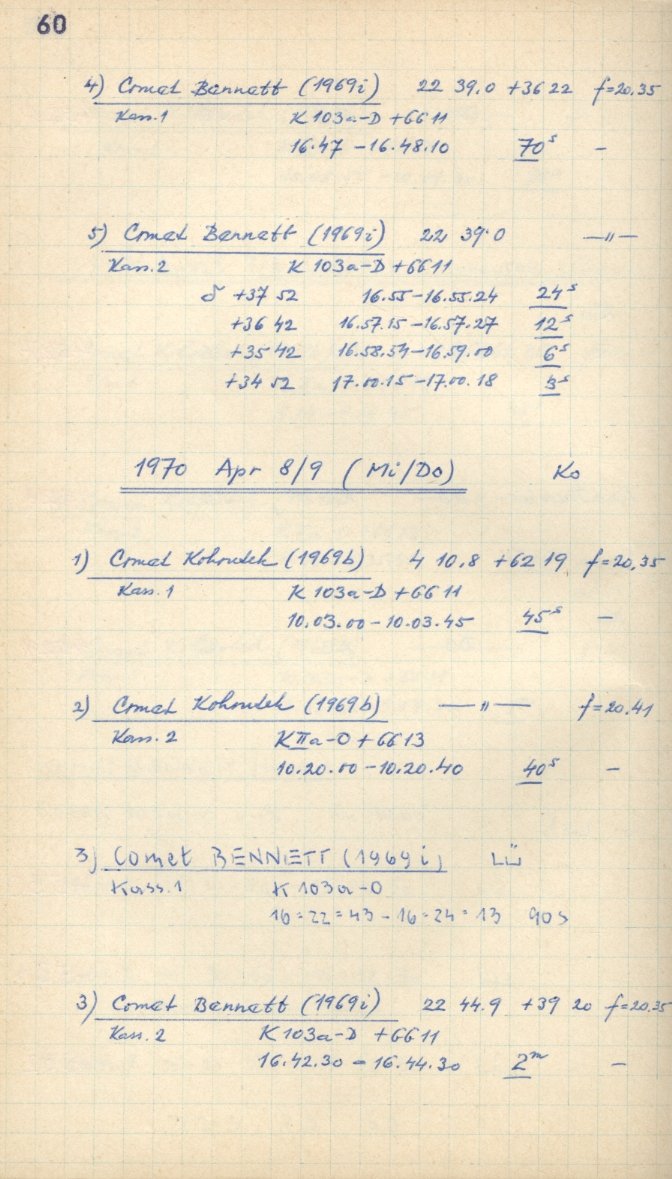 60
4) Comet Bennett (1969i) 22 39.0 +36 22 f=20.35
Kass.1 K 103a-D +GG 11
16.47 - 16.48.10 70s -
5) Comet Bennett (1969i) 22 39.0 —"—
Kass.2 K 103a-D +GG 11
δ +37 52 16.55 - 16.55.24 24s
+36 42 16.57.15 - 16.57.27 12s
+35 42 16.58.54 - 16.59.00 6s
+34 52 17.00.15 - 17.00.18 3s
1970 Apr 8/9 (Mi/Do) Ko
1) Comet Kohoutek (1969b) 4 10.8 +62 19 f=20.35
Kass. 1 K 103a-D +GG 11
10.03.00 - 10.03.45 45s -
2) Comet Kohoutek (1969b) —"— f=20.41
Kass. 2 KIIa-O + GG 13
10.20.00 - 10.20.40 40s -
3) Comet BENNETT (1969i) LÜ
Kass.1 K 103a-O
16=22=43 - 16=24=13 90s
3) Comet Bennett (1969i) 22 44.9 +39 20 f=20.35
Kass. 2 K 103a-D +GG 11
16.42.30 - 16.44.30 2m -